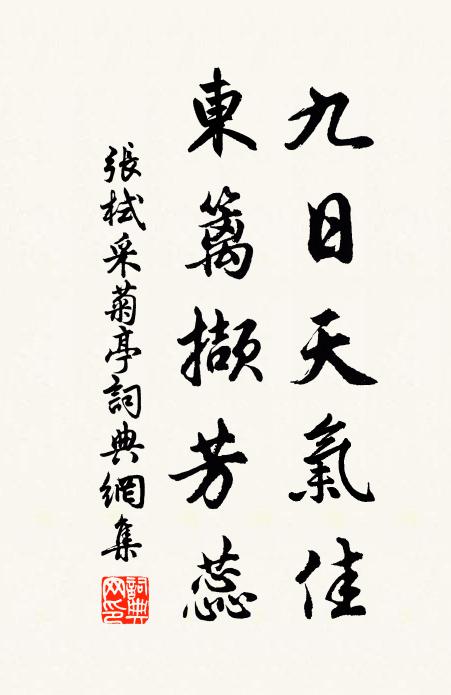 九日天氣佳
東籬擷芳蕊
張栻采菊亭詞典網集
詞典網印